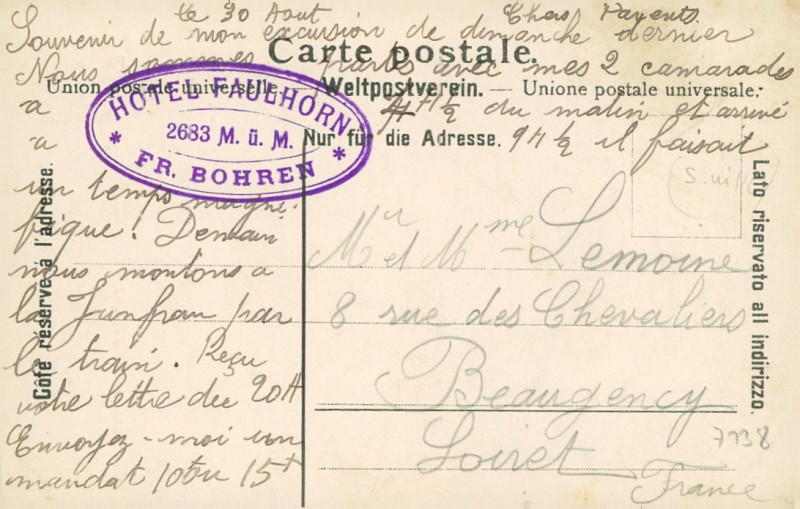 le 30 Aout Chers Parents.
Souvenir de mon excursion de dimanche dernier
Carte postale.
Nous sommes partis avec mes 2 camarades
Union postale universelle. — Weltpostverein. — Unione postale universale.
a 4H½ du matin et arrivé
Nur für die Adresse.
a 9H½ il faisait
un temps magni-
fique! Demain
nous montons a
la Junfrau par
le train. Reçu
votre lettre du 20 A
Envoyez-moi un
mandat 10 ou 15
HOTEL FAULHORN
2683 M. ü. M.
* FR. BOHREN *
Côté réservé à l'adresse.
Lato riservato all indirizzo.
Mr et Mme Lemoine
8 rue des Chevaliers
Beaugency
Loiret
France
7738